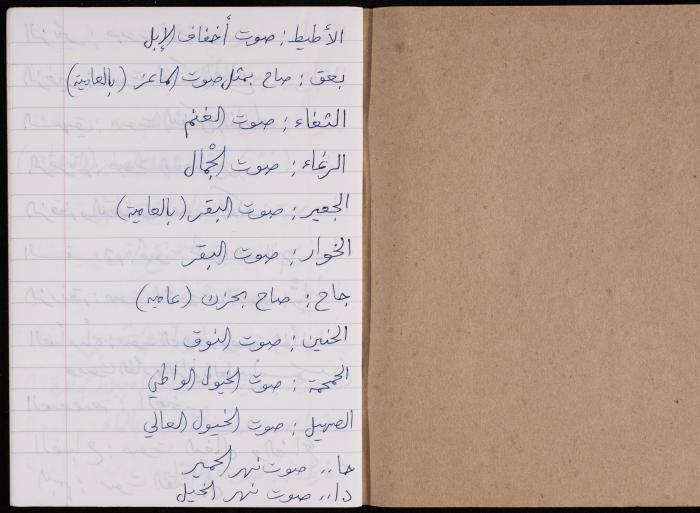 الأطيط: صوت أخفاف الإبل
بعق: صاح بمثل صوت الماعز (بالعامية)
الثغاء: صوت الغنم
الرغاء: صوت الجْمال
الجعير: صوت البقر (بالعامية)
الخوار: صوت البقر
جاح: صاح بحزن (عامية)
الحنين: صوت النوق
الحمحمة: صوت الخيول الواطي
الصهيل: صوت الخيول العالي
حا.. صوت نهر الحمير
دا.. صوت نهر الخيل